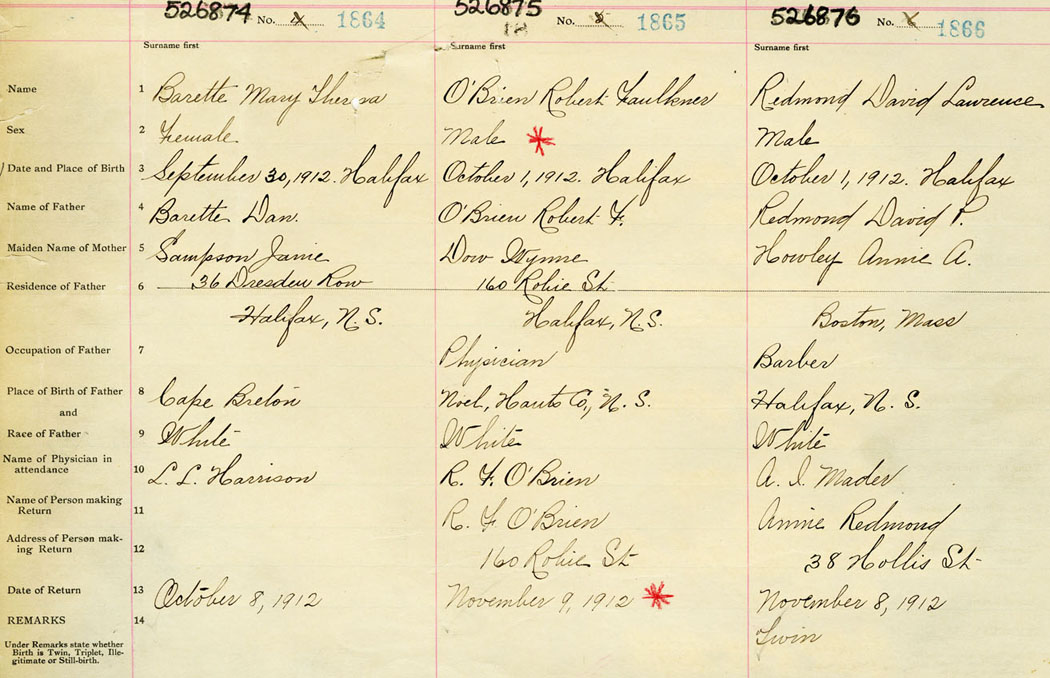 526874 No. 4 1864 526875 No. 5 1865 526876 No. 6 1866
Surname first Surname first Surname first
Name 1 Barette Mary Theresa O'Brien Robert Faulkner Redmond David Lawrence
Sex 2 Female Male Male
Date and Place of Birth 3 September 30, 1912. Halifax October 1, 1912. Halifax October 1, 1912. Halifax
Name of Father 4 Barette Dan. O'Brien Robert F. Redmond David P.
Maiden Name of Mother 5 Sampson Janie Dow Wynne Howley Annie A.
Residence of Father 6 36 Dresden Row 160 Robie St
Halifax, N.S. Halifax, N.S. Boston, Mass
Occupation of Father 7 Physician Barber
Place of Birth of Father 8 Cape Breton Noel, Hants Co, N.S. Halifax, N.S.
and
Race of Father 9 White White White
Name of Physician in
attendance 10 L. L. Harrison R. F. O'Brien A. I. Mader
Name of Person making
Return 11 R. F O'Brien Annie Redmond
Address of Person mak-
ing Return 12 160 Robie St 38 Hollis St
Date of Return 13 October 8, 1912 November 9, 1912 November 8, 1912
REMARKS 14 Twin
Under Remarks state whether
Birth is Twin, Triplet, Ille-
gitimate or Still-birth.